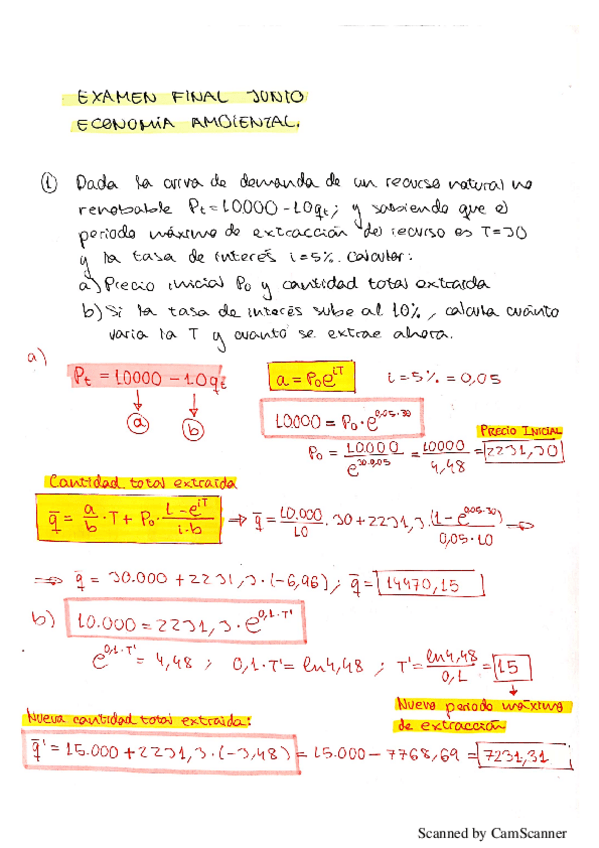 EXAMEN FINAL JUNIO
ECONOMIA AMBIENTAL.
① Dada la curva de demanda de un recurso natural no
renobable Pt = 10000 - 10qt; y sabiendo que el
periodo máximo de extracción del recurso es T=30
y la tasa de interés i=5%. Calcular:
a) Precio inicial P0 y cantidad total extraida
b) Si la tasa de interés sube al 10%, calcula cuánto
varia la T y cuanto se extrae ahora.
a)
Pt = 10000 - 10qt
a = P0e^iT
i = 5% = 0,05
a
b
10.000 = P0 · e^0,05·30
PRECIO INICIAL
P0 = 10000 / e^30·0,05 = 10000 / 4,48 = 2231,30
Cantidad total extraida
q̄ = a/b · T + P0 · (1 - e^iT) / (i·b) ⇒ q̄ = 10.000/10 · 30 + 2231,3 · (1 - e^0,05·30) / (0,05·10) ⇒
⇒ q̄ = 30.000 + 2231,3 · (-6,96); q̄ = 14470,15
b) 10.000 = 2231,3 · e^0,1·T'
e^0,1·T' = 4,48 ; 0,1·T' = ln4,48 ; T' = ln4,48 / 0,1 = 15
Nuevo periodo máximo
de extracción
Nueva cantidad total extraida:
q̄' = 15.000 + 2231,3 · (-3,48) = 15.000 - 7768,69 = 7231,31
Scanned by CamScanner